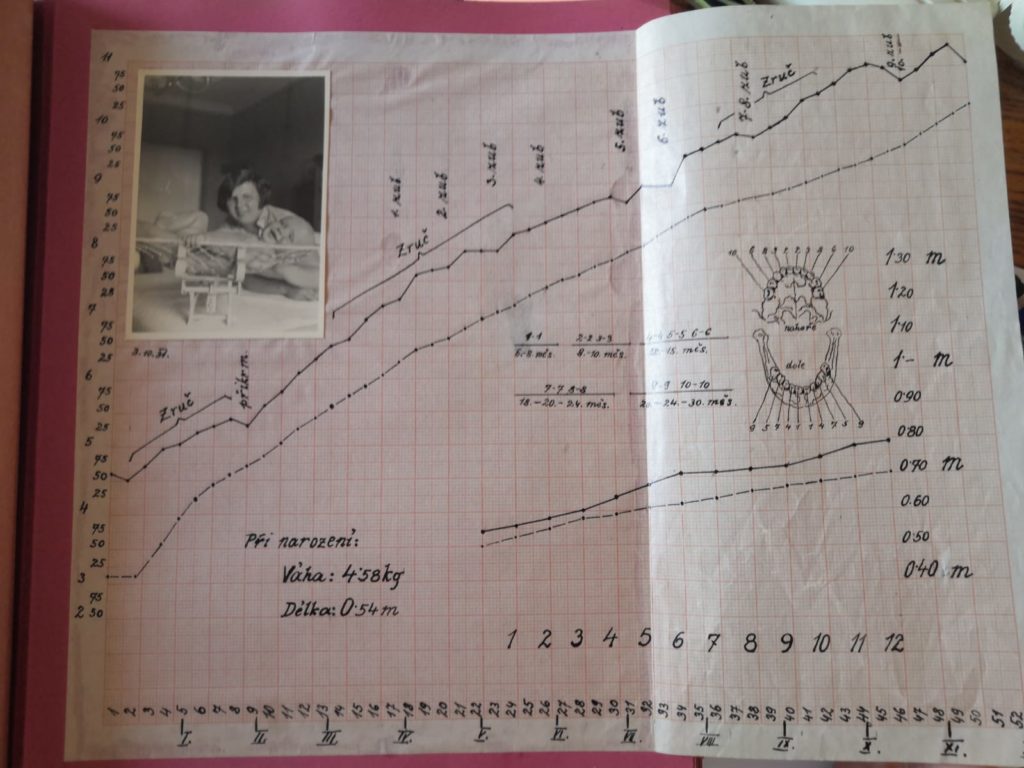 11
75
50
25
10
75
50
25
9
75
50
25
8
75
50
25
7
75
50
25
6
75
50
25
5
75
50
25
4
75
50
25
3
75
2 50
Zruč
příkrm.
Zruč
1. zub
2. zub
3. zub
4. zub
5. zub
6. zub
7.-8. zub
Zruč
10 10
nahoře
dole
1·30 m
1·20
1·10
1·— m
0·90
0·80
0·70 m
0·60
0·50
0·40 m
1-1 2-2 3-3 4-4 5-5 6-6
6.-8 měs. 8.-10. měs. měs.
7-7 8-8 9-9 10-10
18.-20.-24. měs. 20.-24.-30. měs.
Při narození:
Váha: 4·58kg
Délka: 0·54 m
1 2 3 4 5 6 7 8 9 10 11 12
1 2 3 4 5 6 7 8 9 10 11 12 13 14 15 16 17 18 19 20 21 22 23 24 25 26 27 28 29 30 31 32 33 34 35 36 37 38 39 40 41 42 43 44 45 46 47 48 49 50 51 52
I. II. III. IV. V. VI. VII. VIII. IX. X. XI.